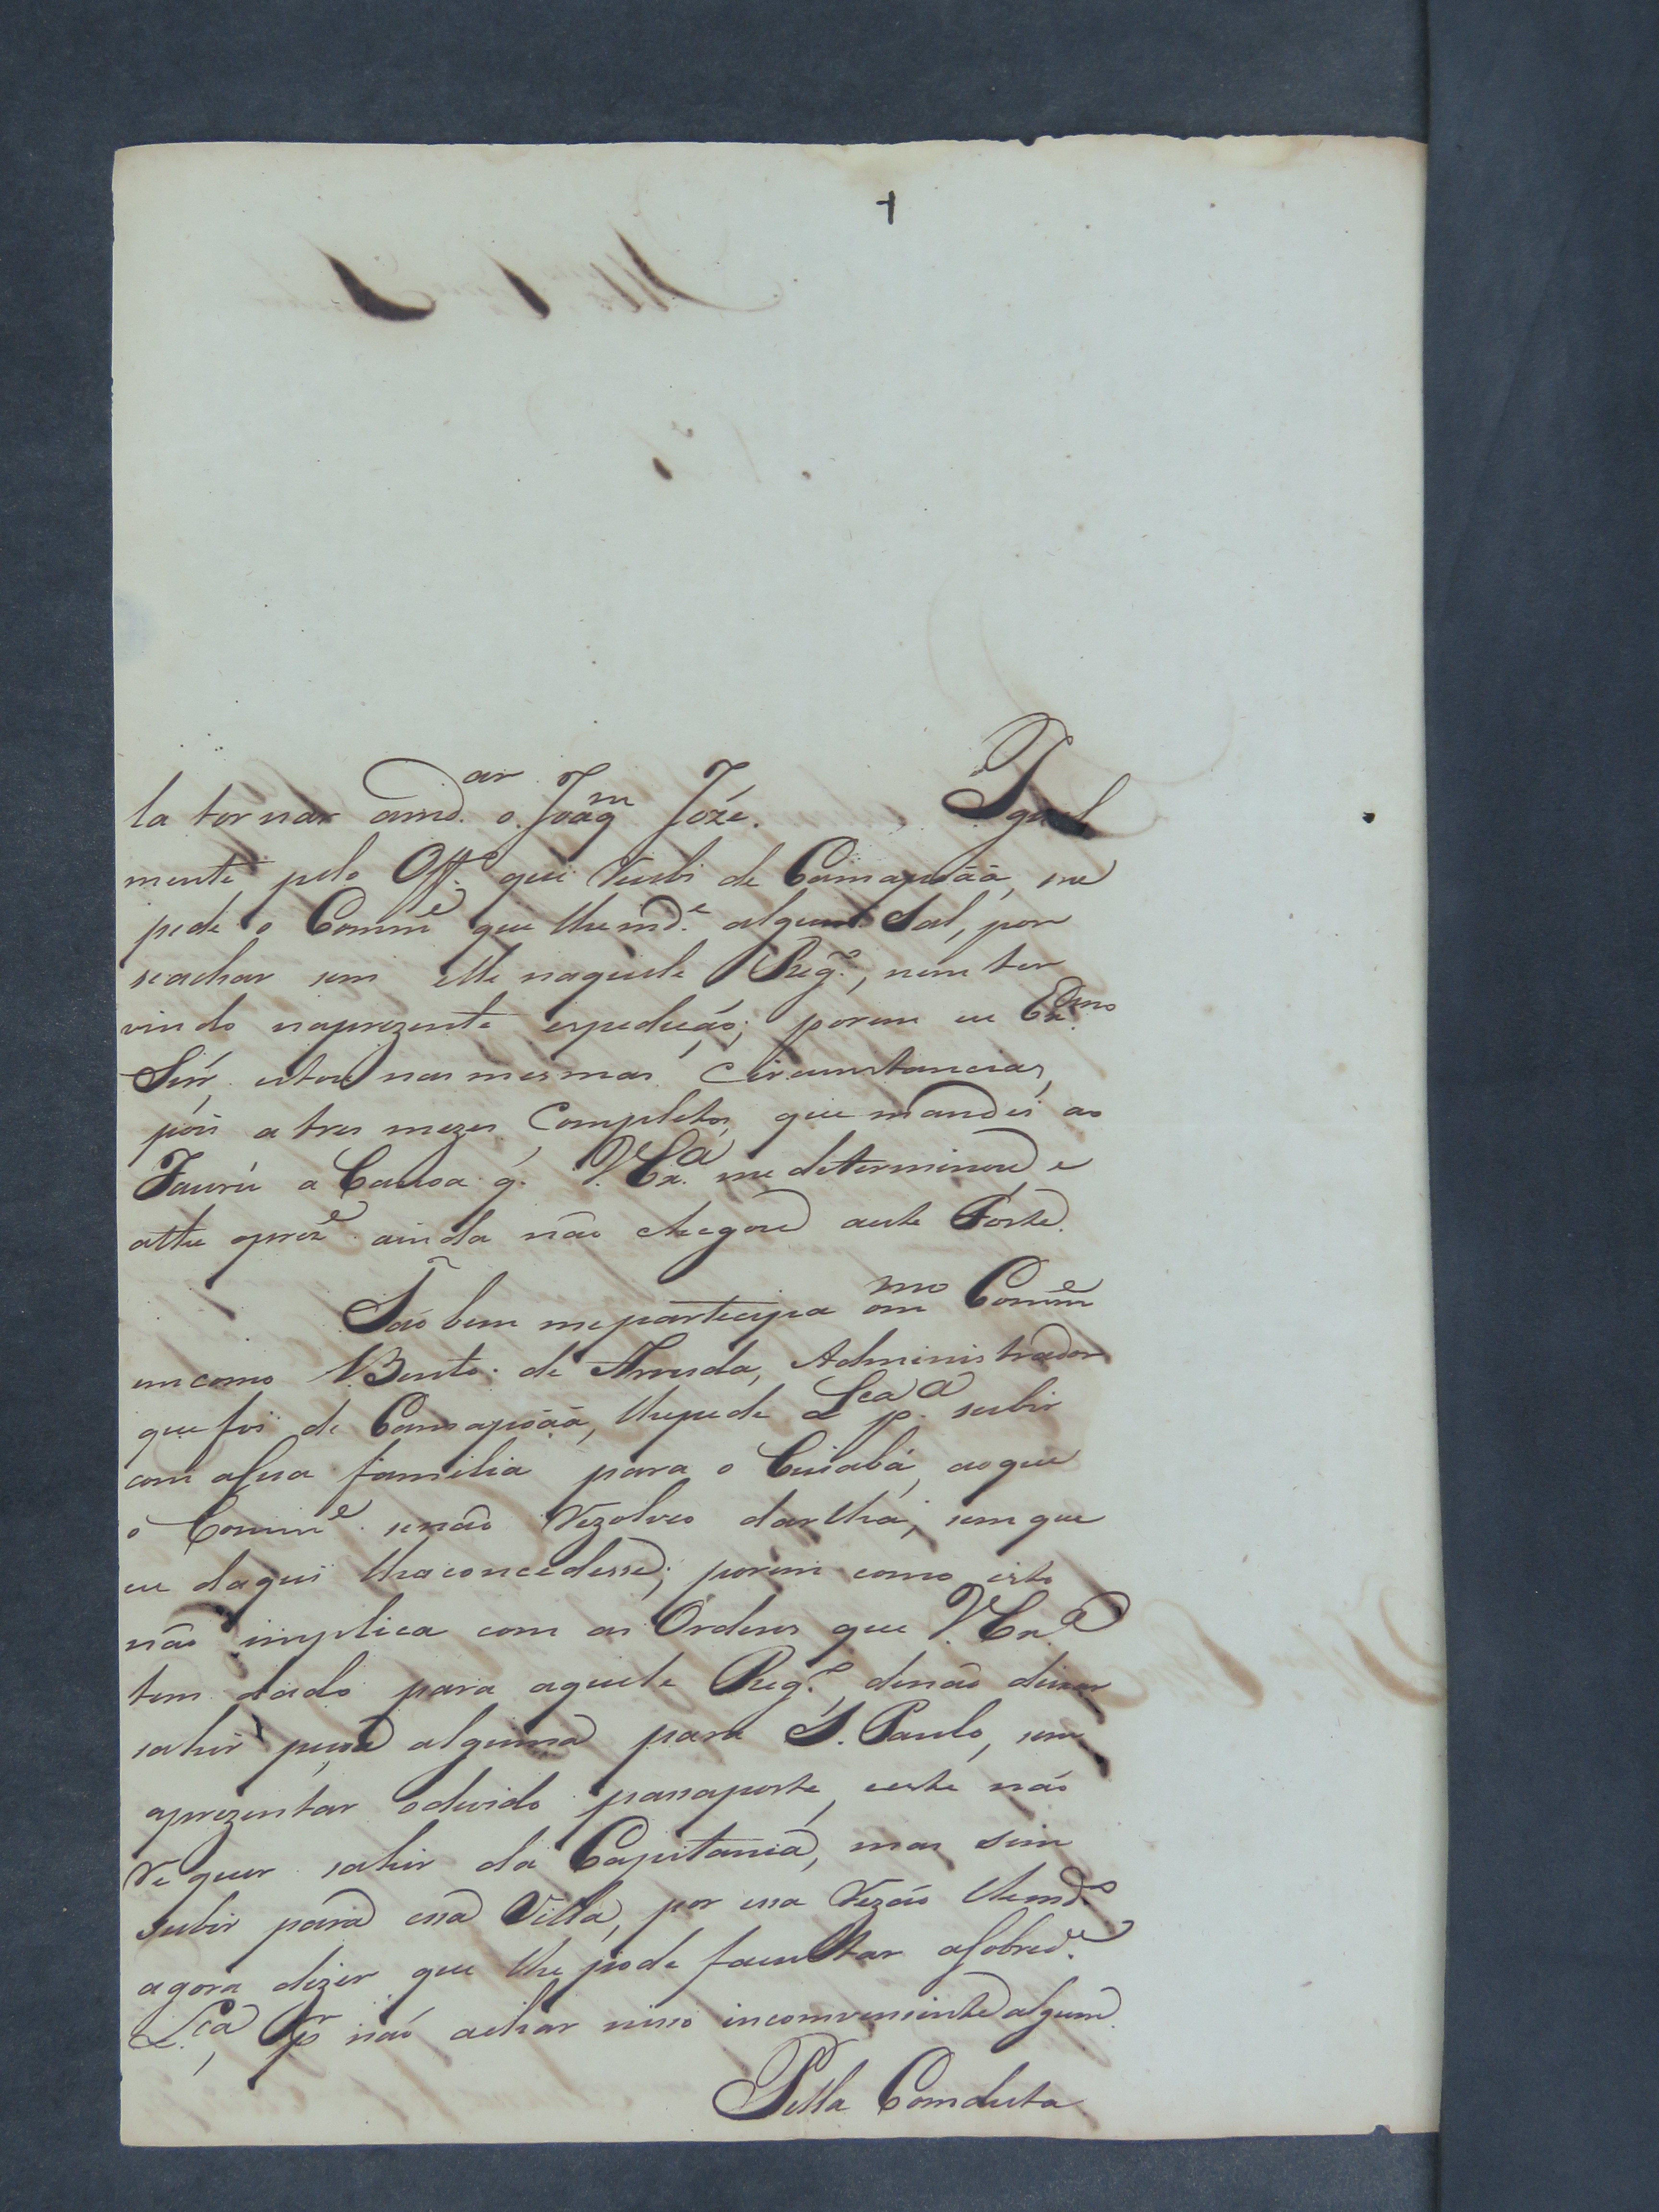 la tornar amd.ar o Joaqm Jozé. Igual
mente pelo Off.o que Recebi de Camapoãã, me
pede o Comme que lhe md.e algum Sal, por
seachar sem elle naquele Reg.o, nem ter
vindo naprezente expedição; porem eu Exmo
Snr, estou nas mesmas circumstancias,
pois a tres mezes completos, que mandei ao
Jaurú a Canoa q. V.Ex.a me determinou e
athe oprez.e ainda não chegou aeste Forte.
Tãobem meparticipa omo Comme
emcomo Bento de Arruda, Administrador
que foi de Camapoãã, lhepede Lca p.a subir
com asua familia para o Cuiabá, aoque
o Comm.e senão Rezolveo darlha, sem que
eu daqui lhaconcedesse; porem como isto
não implica com as Ordens que V.Ex.a
tem dado para aquele Reg.o, denão deixar
sahir pessoa alguma para S. Paulo, sem
aprezentar odevido passaporte, eeste não
Requer sahir da Capitania, mas sim
subir para essa Villa, por essa Rezão lhemd.o
agora dizer que lhe pode facultar asobred.a
L.ca, Pr não achar nisso incomveniente algum.
Pella Conduta